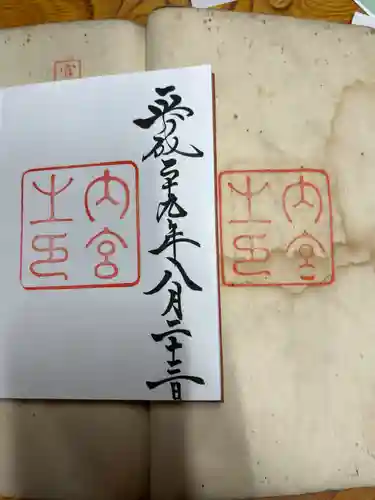 平成二十九年八月二十三日
内宮
之印
内宮
之印